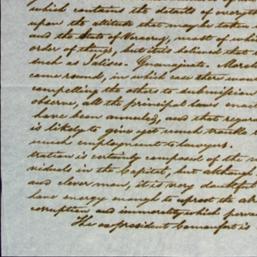 which contains the details of everyth
upon the attitude that may be taken
and the State of Veracruz, most of which
order of things, but it is believed that
such as Jalisco. Guanajuato. Morel
came round, in which case there would
compelling the others to submission
observe, all the principal laws enac
have been annulled, and that regar
is likely to give yet much trouble
much employment to lawyers.
tration is certainly composed of the
viduals in the Capital, but although
and clever man, it is very doubtful
have energy enough to uproot the ab
corruption and immorality which perva
The ex president Comonfort is